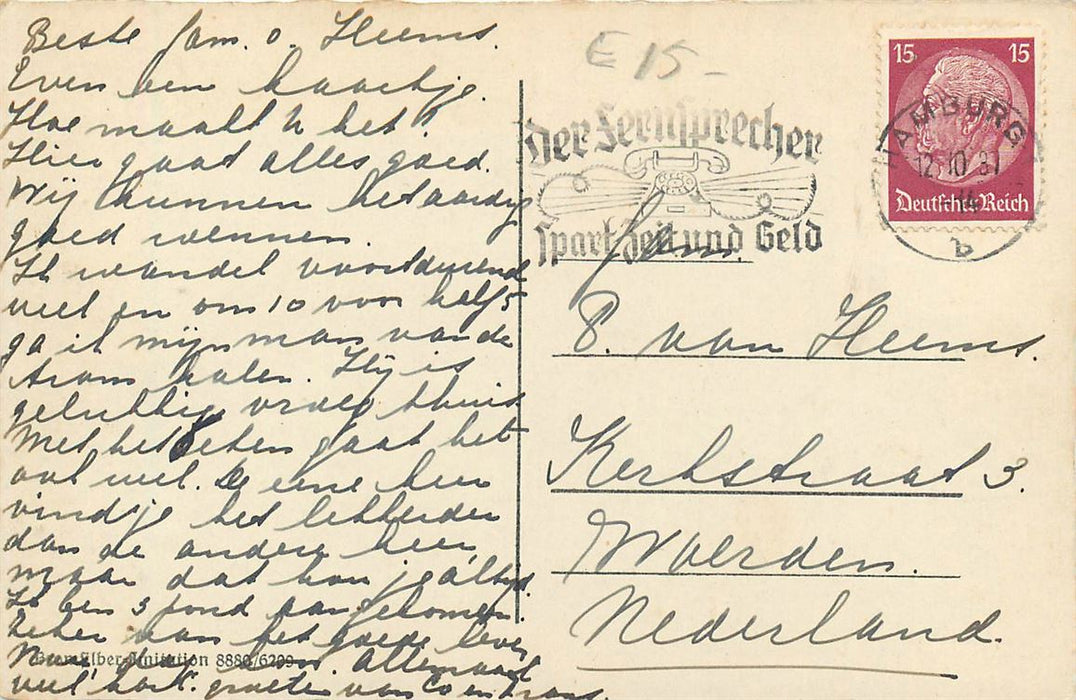 Beste fam. v. Heems.
Even een kaartje.
Hoe maakt U het?
Hier gaat alles goed.
Wij kunnen het aardig
goed wennen.
Ik wandel voortdurend
veel en om 10 voor half 5
ga ik mijn man van de
tram halen. Hij is
gelukkig vroeg thuis
Met het eten gaat het
ook wel. De eene keer
vind je het lekkerder
dan de andere keer,
maar dat kan je altijd.
Ik ben 3 pond aangekomen.
Zeker van het goede leven
Nu allemaal
veel hart. groeten van Co en
Brom Silber-Imitation 8880/6299
E 15-
Der Fernsprecher
spart Zeit und Geld
15 15
Deutsches Reich
HAMBURG
12.10.37
14
b
Fam.
P. van Heems.
Kerkstraat 3.
Woerden.
Nederland.